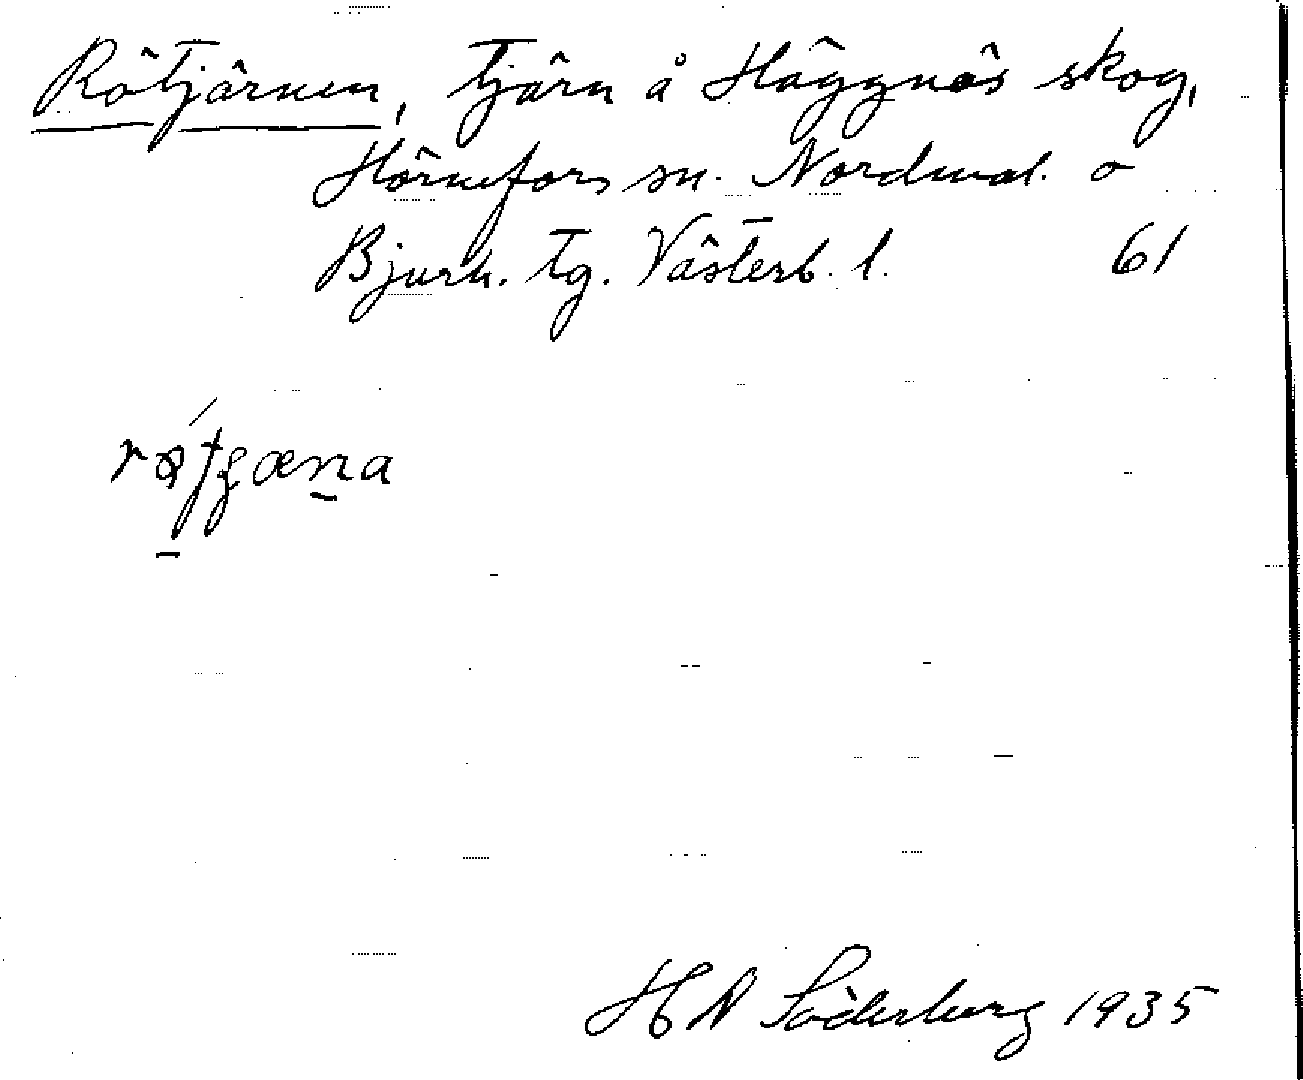 Rötjärnen, tjärn å Häggnäs skog,
Hörnefors sn. Nordmal. o
Bjurh. tg. Västerb. l. 61
H N Söderberg 1935